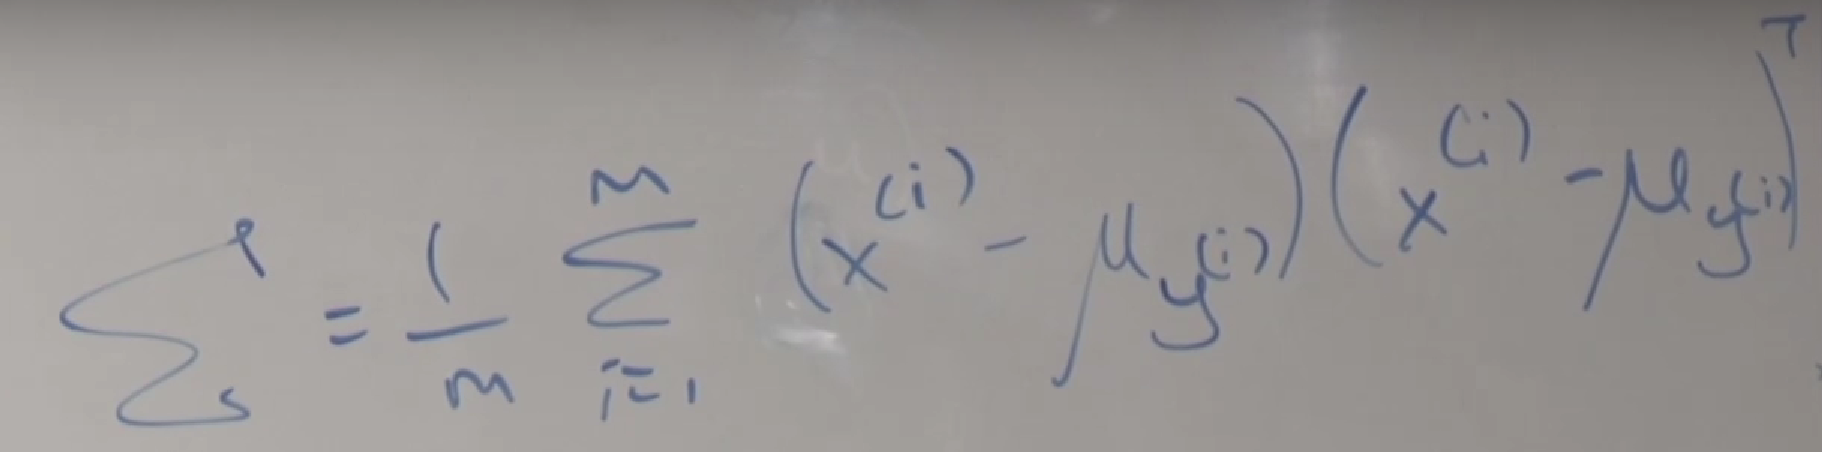 $\Sigma = \frac{1}{m} \sum_{i=1}^{m} (x^{(i)} - \mu_{y^{(i)}})(x^{(i)} - \mu_{y^{(i)}})^T$